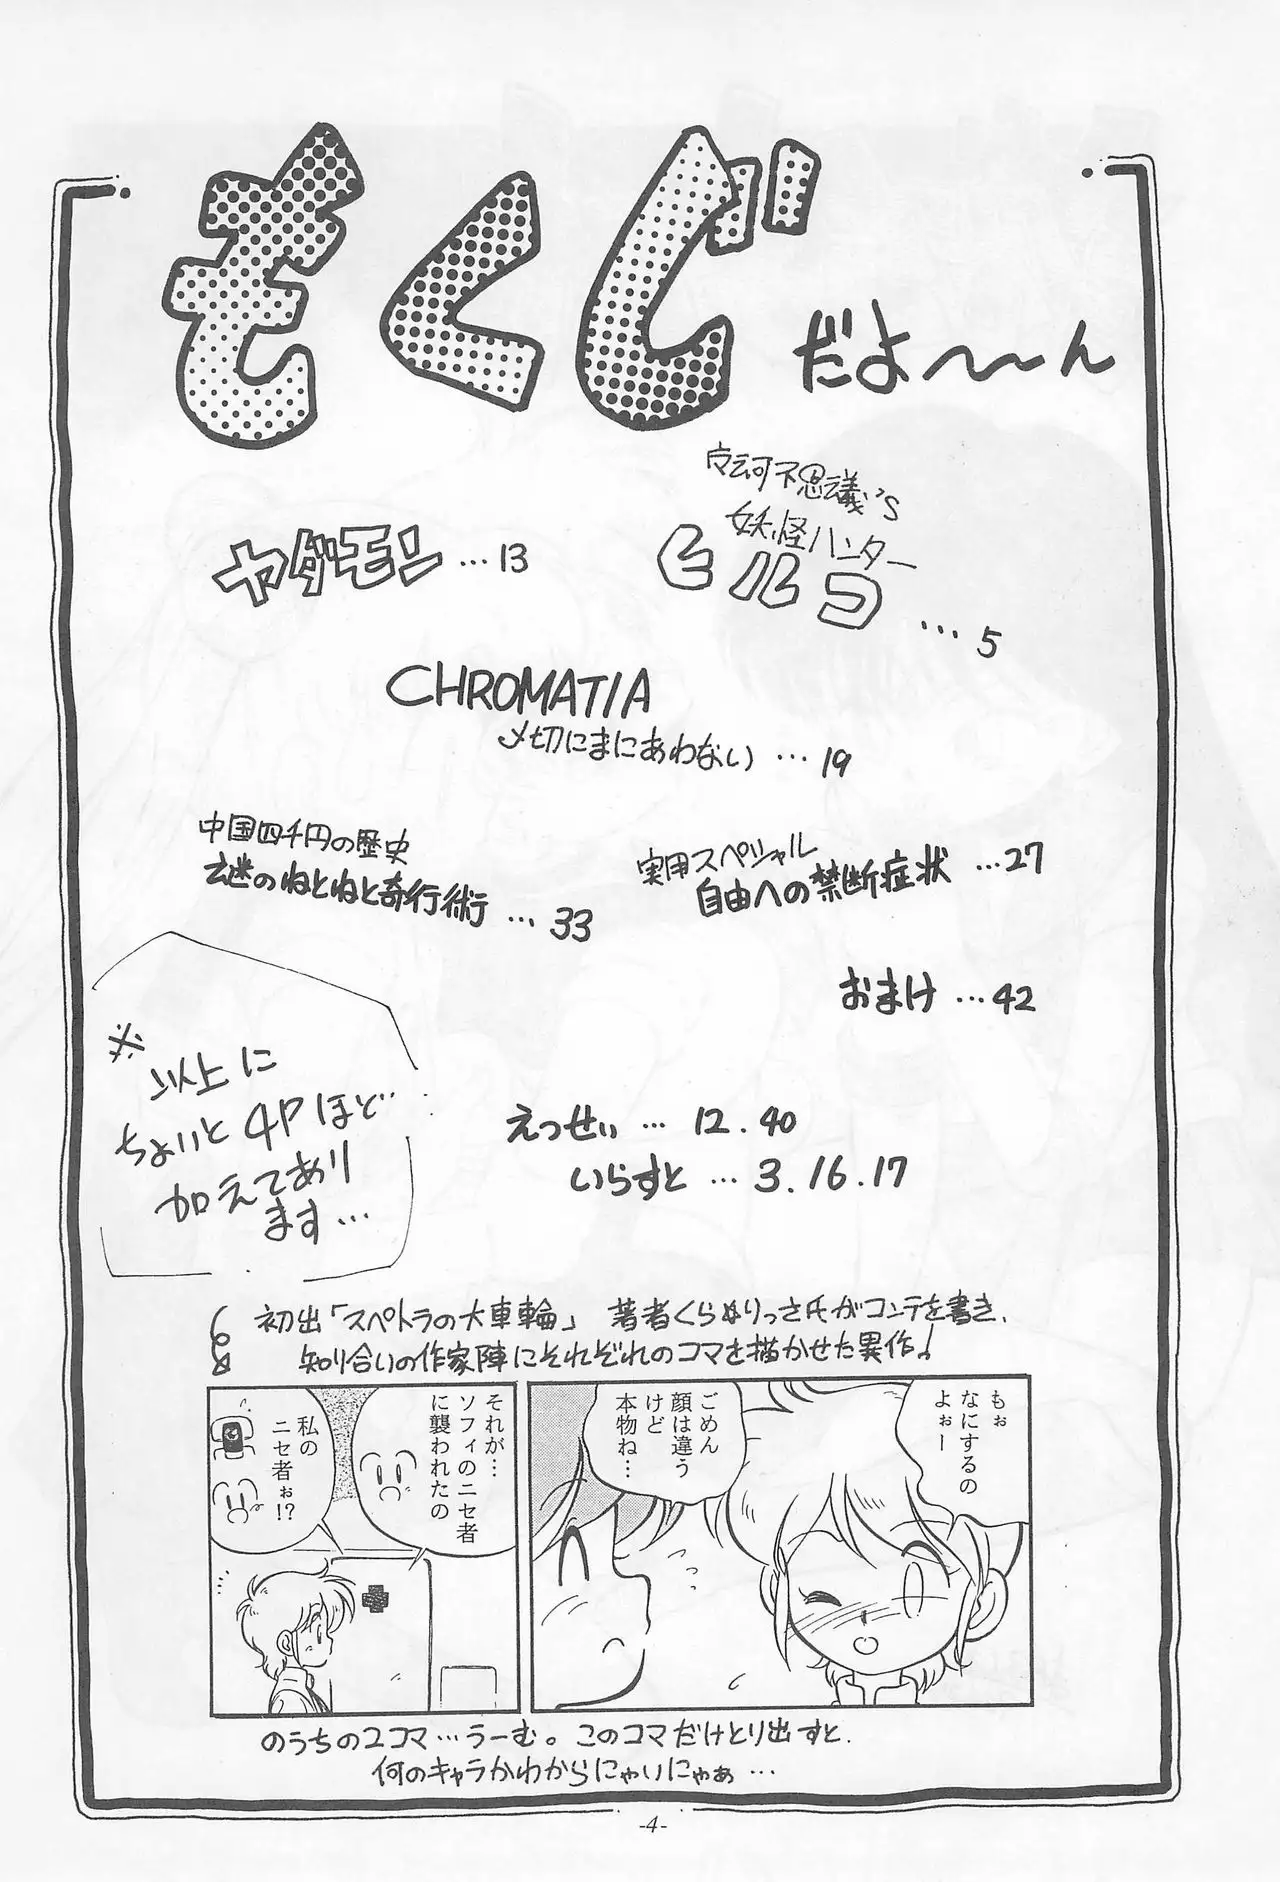 もくじ
だよ〜〜ん
摩訶不思議'S
妖怪ハンター
ヒルコ …5
ヤダモン …13
CHROMATIA
〆切にまにあわない …19
実用スペシャル
自由への禁断症状 …27
中国四千円の歴史
謎のねとねと奇行術 …33
おまけ …42
※
以上に
ちょいと4Pほど
加えてあり
ます…
えっせい … 12.40
いらすと … 3.16.17
初出「スペトラの大車輪」 著者くらぬりっさ氏がコンテを書き、
知り合いの作家陣にそれぞれのコマを描かせた異作!
もぉ
なにするの
よぉー
ごめん
顔は違う
けど
本物ね…
それが…
ソフィのニセ者
に襲われたの
私の
ニセ者ぉ!?
のうちの2コマ…うーむ。このコマだけとり出すと、
何のキャラかわからにゃいにゃぁ…
-4-